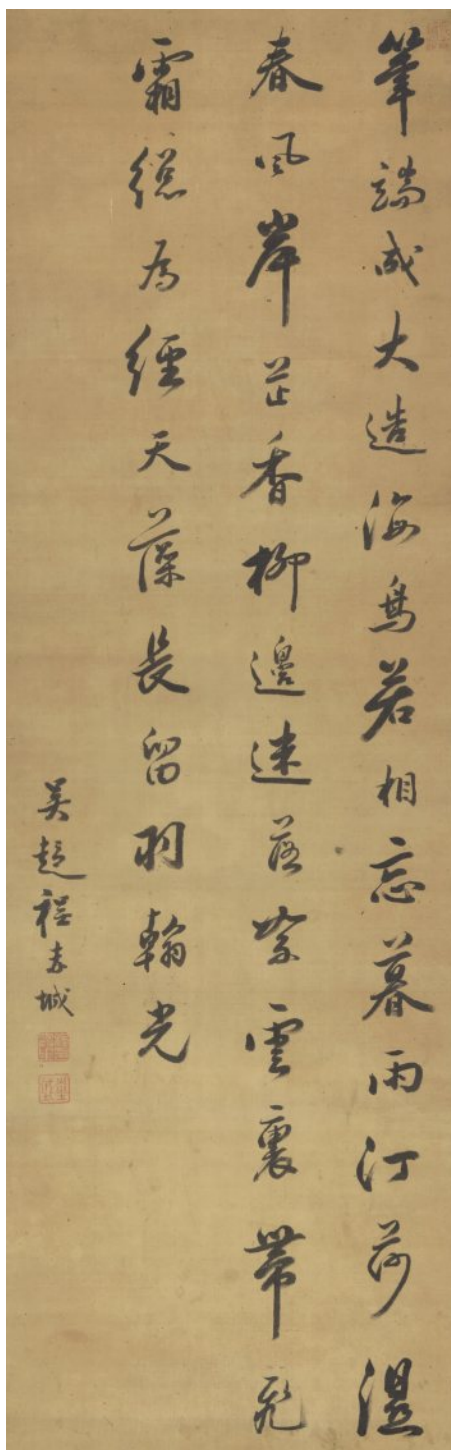 筆端成大造海鳥若相忘暮雨汀荷濕
春風岸芷香柳邊迷落絮雲裏帶飛
霜總為經天藻長留羽翰光
吳趨